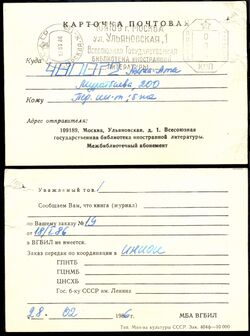 КАРТОЧКА ПОЧТОВАЯ
109189, г. МОСКВА
ул. Ульяновская, 1
Всесоюзная Государственная
библиотека иностранной
литературы
Куда Алма-Ата
200
Кому
Адрес отправителя:
109189, Москва, Ульяновская, д. 1. Всесоюзная
государственная библиотека иностранной литературы.
Межбиблиотечный абонемент
Уважаемый тов.!
Сообщаем Вам, что книга (журнал)
по Вашему заказу № 19
от 18/I.86
в ВГБИЛ не имеется.
Заказ передан по координации в ИНИОН
ГПНТБ
ГЦНМБ
ЦНСХБ
Гос. б-ку СССР им. Ленина
28. 02 1986 г. МБА ВГБИЛ
Тип. Мин-ва культуры СССР. Зак. 404ф—10 000